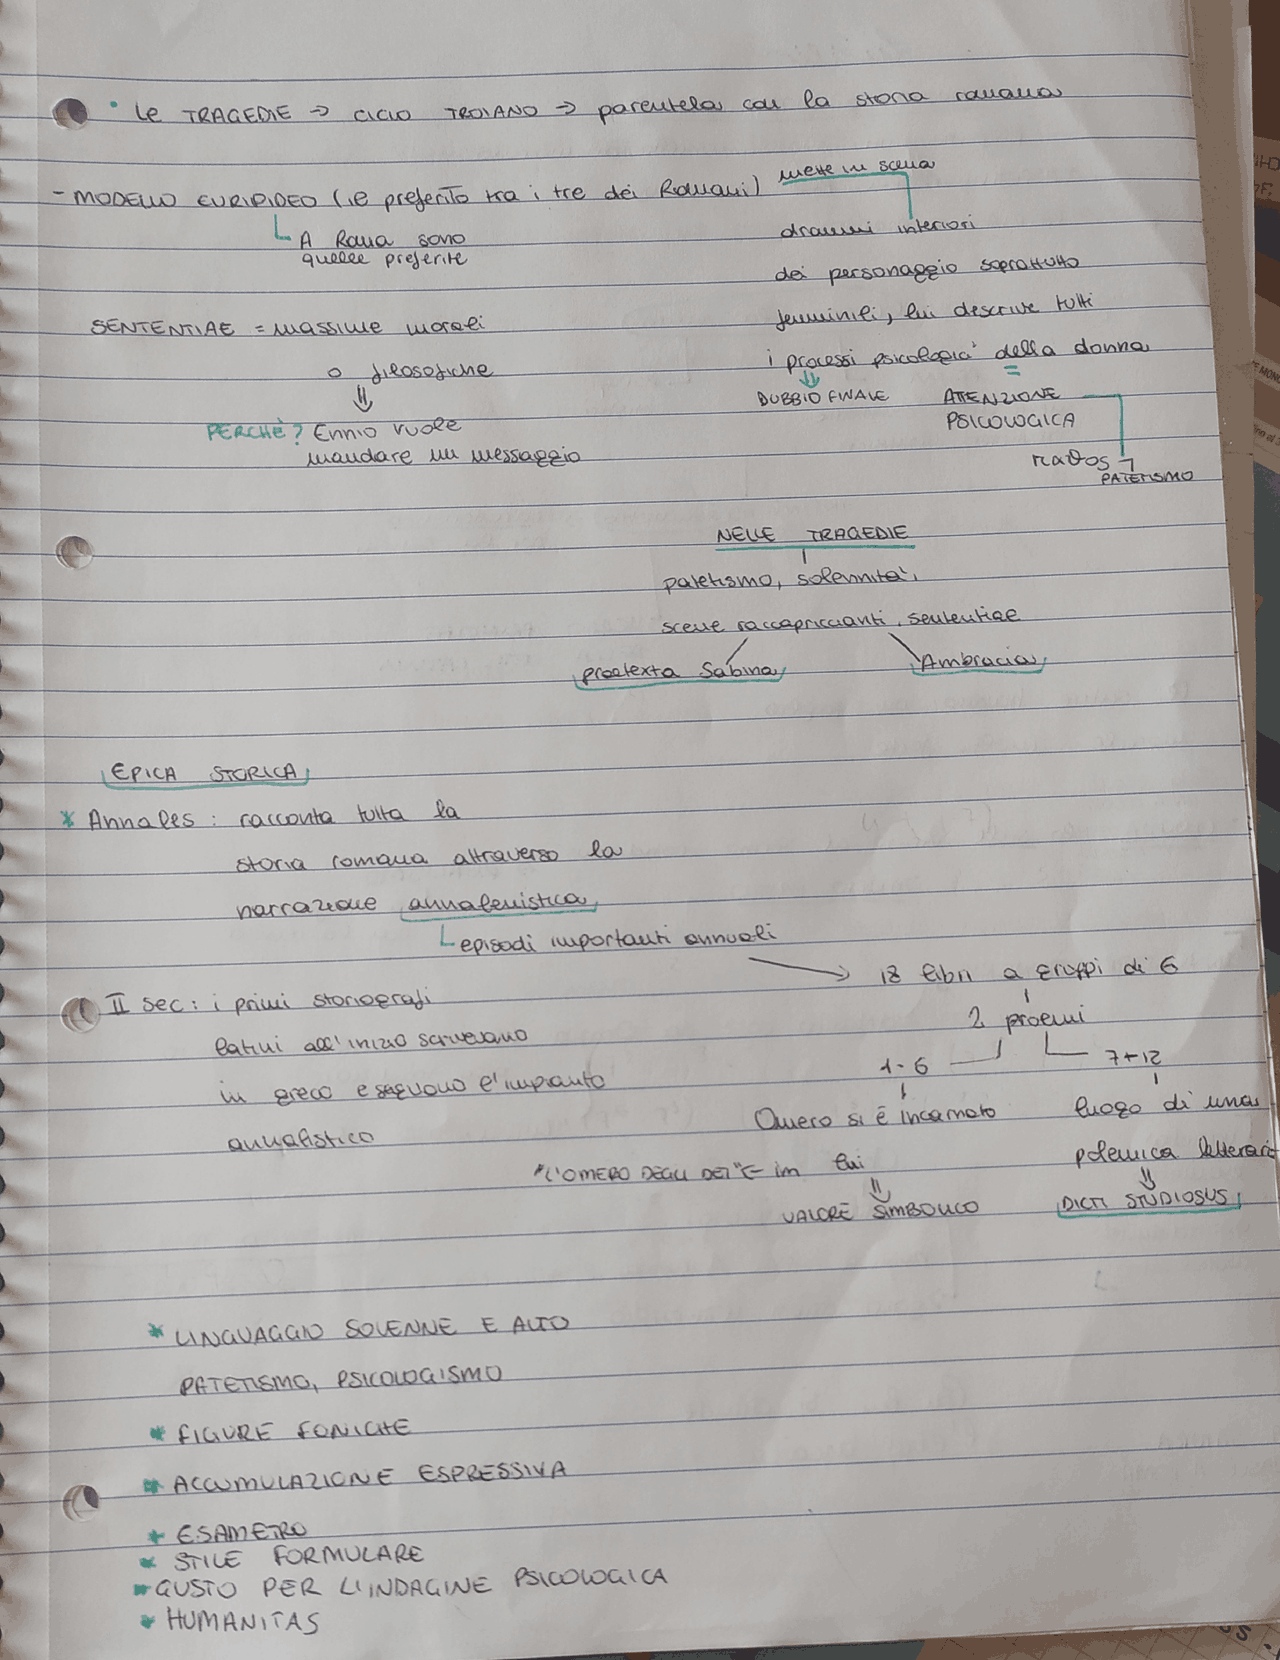 • Le TRAGEDIE → CICLO TROIANO → parentela con la storia romana
- MODELLO EURIPIDEO (il preferito tra i tre dei Romani) mette in scena
A Roma sono
quelle preferite
drammi interiori
dei personaggio soprattutto
femminili, lui descrive tutti
i processi psicologici della donna
DUBBIO FINALE
ATTENZIONE
PSICOLOGICA
παθος
PATETISMO
SENTENTIAE = massime morali
o filosofiche
PERCHÈ? Ennio vuole
mandare un messaggio
NELLE TRAGEDIE
patetismo, solennità,
scene raccapriccianti, sententiae
praetexta Sabina
Ambracia
EPICA STORICA
* Annales: racconta tutta la
storia romana attraverso la
narrazione annalenistica
episodi importanti annuali
→ 18 libri a gruppi di 6
2 proemi
1-6
7+12
Omero si è incarnato
in lui
"L'OMERO DEGLI DEI" ←
VALORE SIMBOLICO
luogo di una
polemica letterari
DICTI STUDIOSUS
II sec: i primi storiografi
latini all'inizio scrivevano
in greco e seguono l'impianto
annalistico
* LINGUAGGIO SOLENNE E ALTO
PATETISMO, PSICOLOGISMO
* FIGURE FONICHE
* ACCUMULAZIONE ESPRESSIVA
* ESAMETRO
* STILE FORMULARE
* GUSTO PER L'INDAGINE PSICOLOGICA
* HUMANITAS